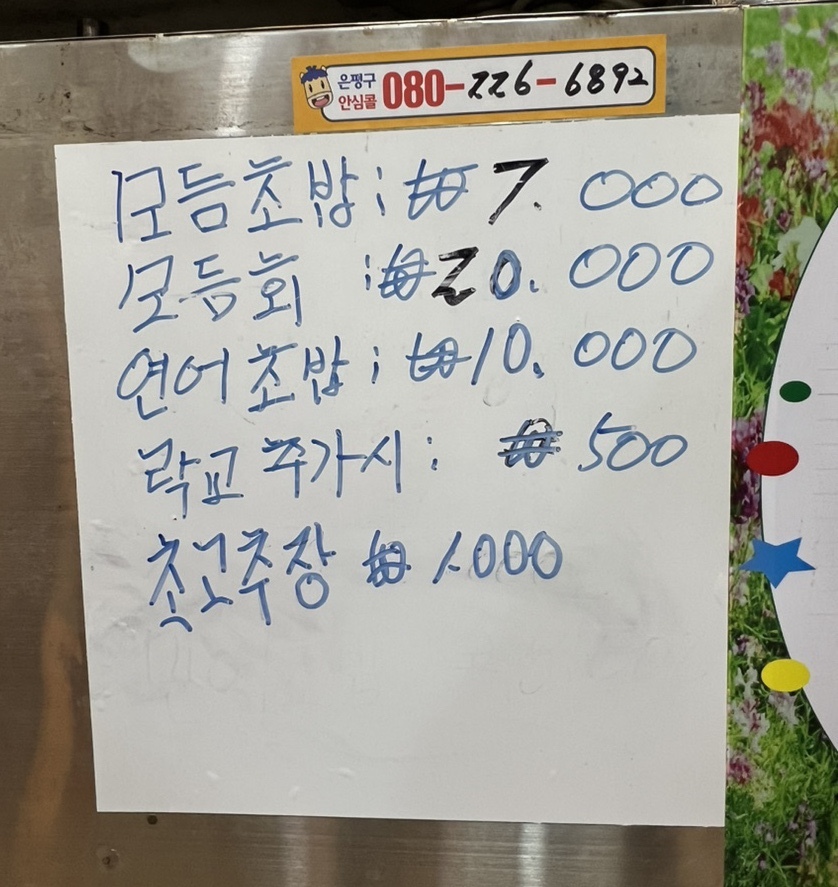 은평구
안심콜 080-226-6892
모듬초밥 : ₩ 7.000
모듬회 : ₩20.000
연어초밥 : ₩10.000
락교 추가시 : ₩ 500
촛고추장 ₩ 1.000